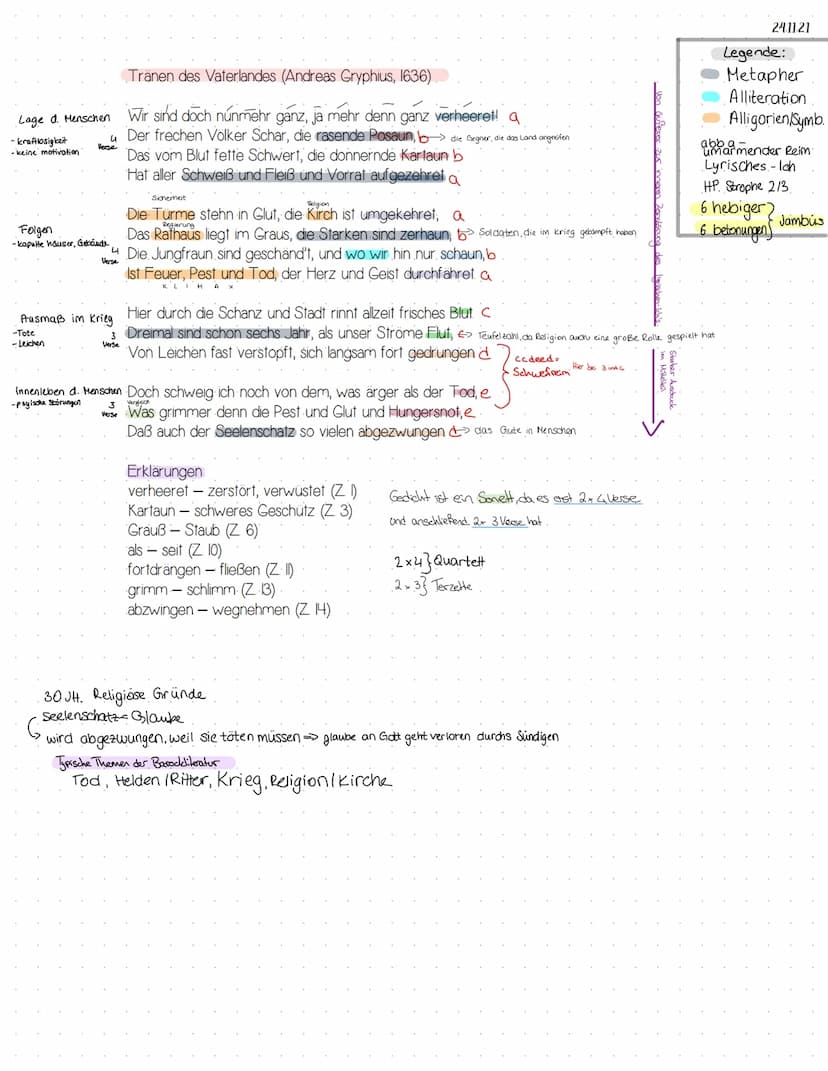 24.11.21
Legende:
Metapher
Alliteration
Alligorien/Symb.
abba-
umarmender Reim
Lyrisches-Ich
HP. Strophe 2/3
6 hebiger } Jambus
6 betonungen
Tränen des Vaterlandes (Andreas Gryphius, 1636)
Lage d. Menschen
- kraftlosigkeit
- keine motivation
4 Verse
Wir sind doch nunmehr ganz, ja mehr denn ganz verheeret! a
Der frechen Völker Schar, die rasende Posaun, b → die Gegner, die das Land angreifen
Das vom Blut fette Schwert, die donnernde Kartaun b
Hat aller Schweiß und Fleiß und Vorrat aufgezehret a
Sicherheit
Religion
Die Türme stehn in Glut, die Kirch ist umgekehret, a
Regierung
Folgen
- kaputte Häuser, Gebäude
4 Verse
Das Rathaus liegt im Graus, die Starken sind zerhaun, b → Soldaten, die im Krieg gekämpft haben
Die Jungfraun sind geschänd't, und wo wir hin nur schaun, b
Ist Feuer, Pest und Tod, der Herz und Geist durchfähret a
KLIMAX
Ausmaß im Krieg
- Tote
- Leichen
3 Verse
Hier durch die Schanz und Stadt rinnt allzeit frisches Blut c
Dreimal sind schon sechs Jahr, als unser Ströme Flut, c → Teufelzahl, da Religion auch eine große Rolle gespielt hat
Von Leichen fast verstopft, sich langsam fort gedrungen d
ccdeed =
Schweifreim
Innenleben d. Menschen
- psyische Störungen
3 Verse
Doch schweig ich noch von dem, was ärger als der Tod, e
Vergleich
Was grimmer denn die Pest und Glut und Hungersnot, e
Daß auch der Seelenschatz so vielen abgezwungen d → das Gute in Menschen
Erklärungen
verheeret – zerstört, verwüstet (Z. 1)
Kartaun – schweres Geschütz (Z. 3)
Grauß – Staub (Z. 6)
als – seit (Z. 10)
fortdrängen – fließen (Z. 11)
grimm – schlimm (Z. 13)
abzwingen – wegnehmen (Z. 14)
Gedicht ist ein Sonett, da es erst 2x 4 Verse
und anschließend 2x 3 Verse hat
2x4 } Quartett
2x3 } Terzette
30 JH. Religiöse Gründe
Seelenschatz = Glaube
wird abgezwungen, weil sie töten müssen => glaube an Gott geht verloren durchs Sündigen
Typische Themen der Barockliteratur
Tod, Helden/Ritter, Krieg, Religion/Kirche